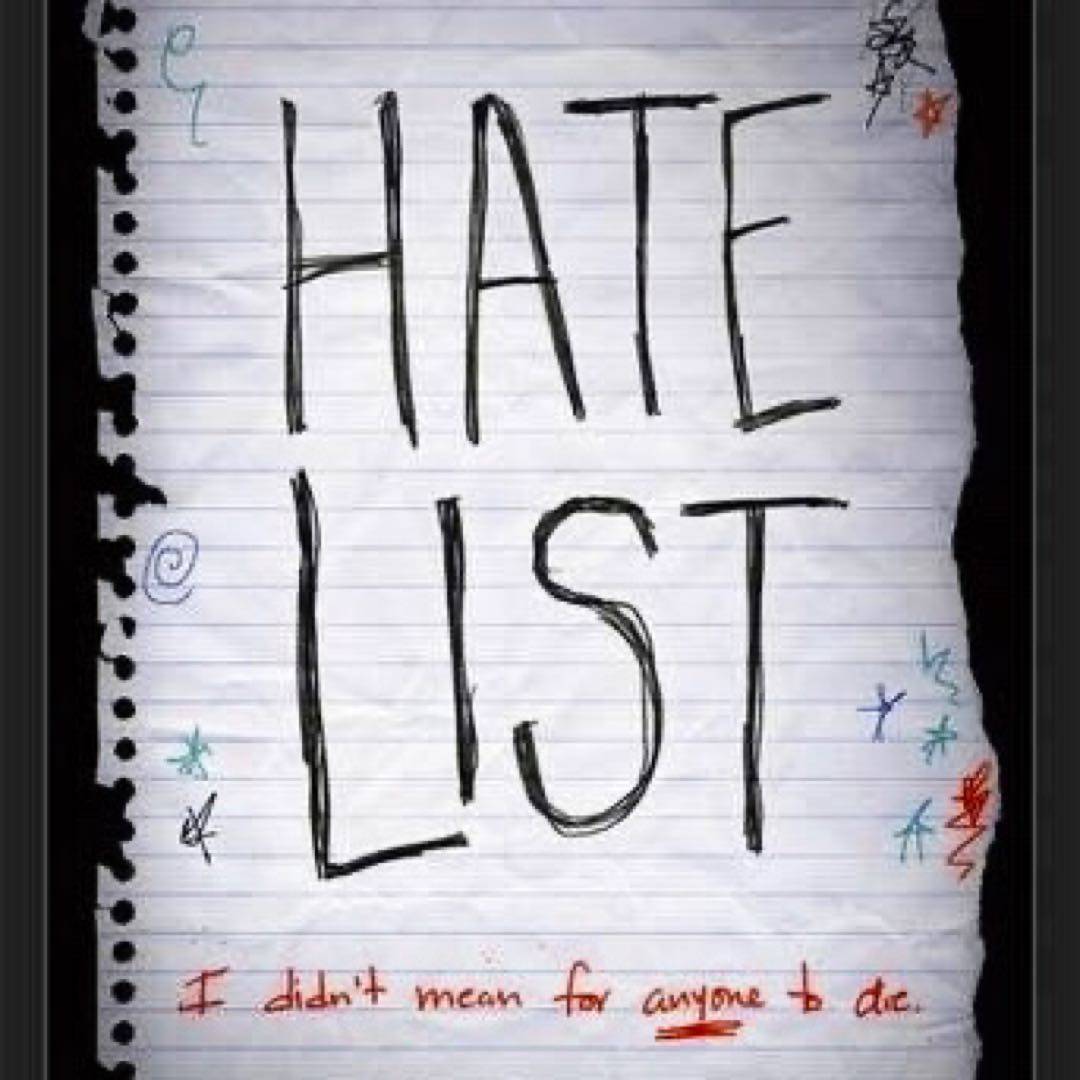 HATE
LIST
I didn't mean for anyone to die.